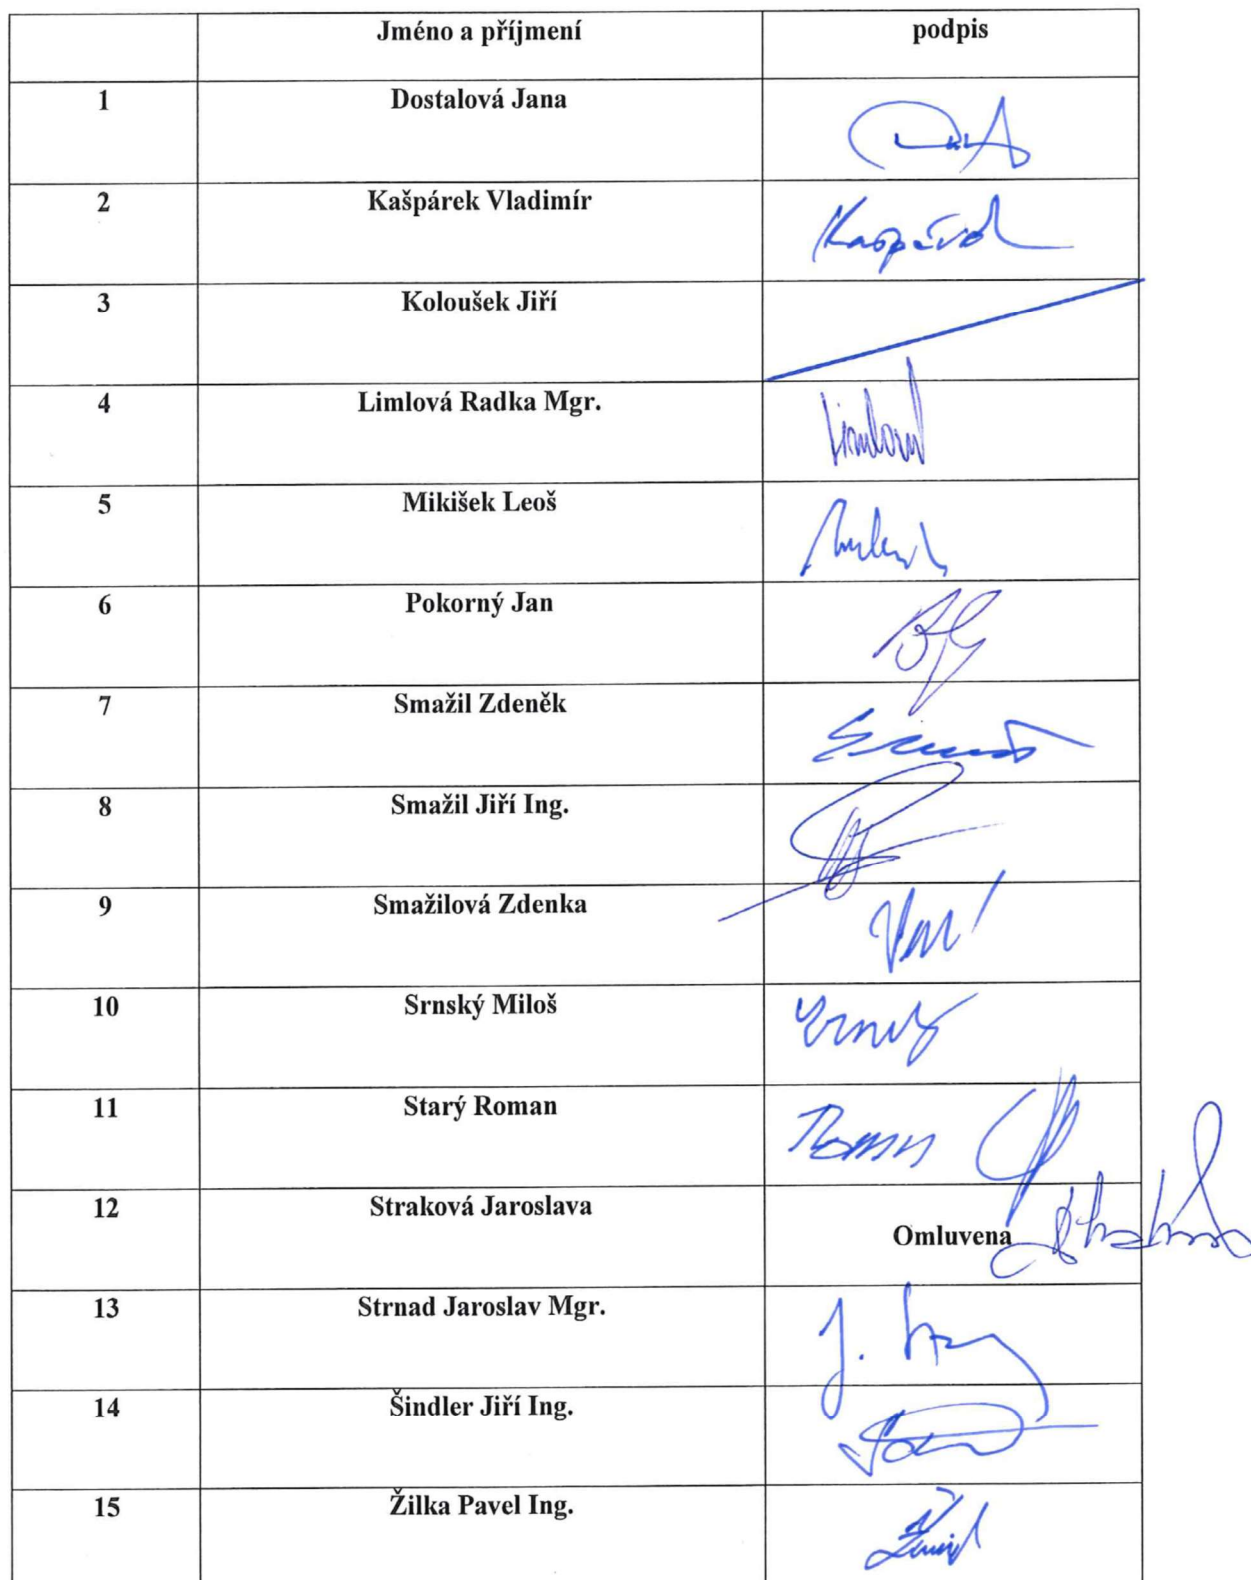 Jméno a příjmení podpis
1 Dostalová Jana
2 Kašpárek Vladimír
3 Koloušek Jiří
4 Limlová Radka Mgr.
5 Mikišek Leoš
6 Pokorný Jan
7 Smažil Zdeněk
8 Smažil Jiří Ing.
9 Smažilová Zdenka
10 Srnský Miloš
11 Starý Roman
12 Straková Jaroslava Omluvena
13 Strnad Jaroslav Mgr.
14 Šindler Jiří Ing.
15 Žilka Pavel Ing.